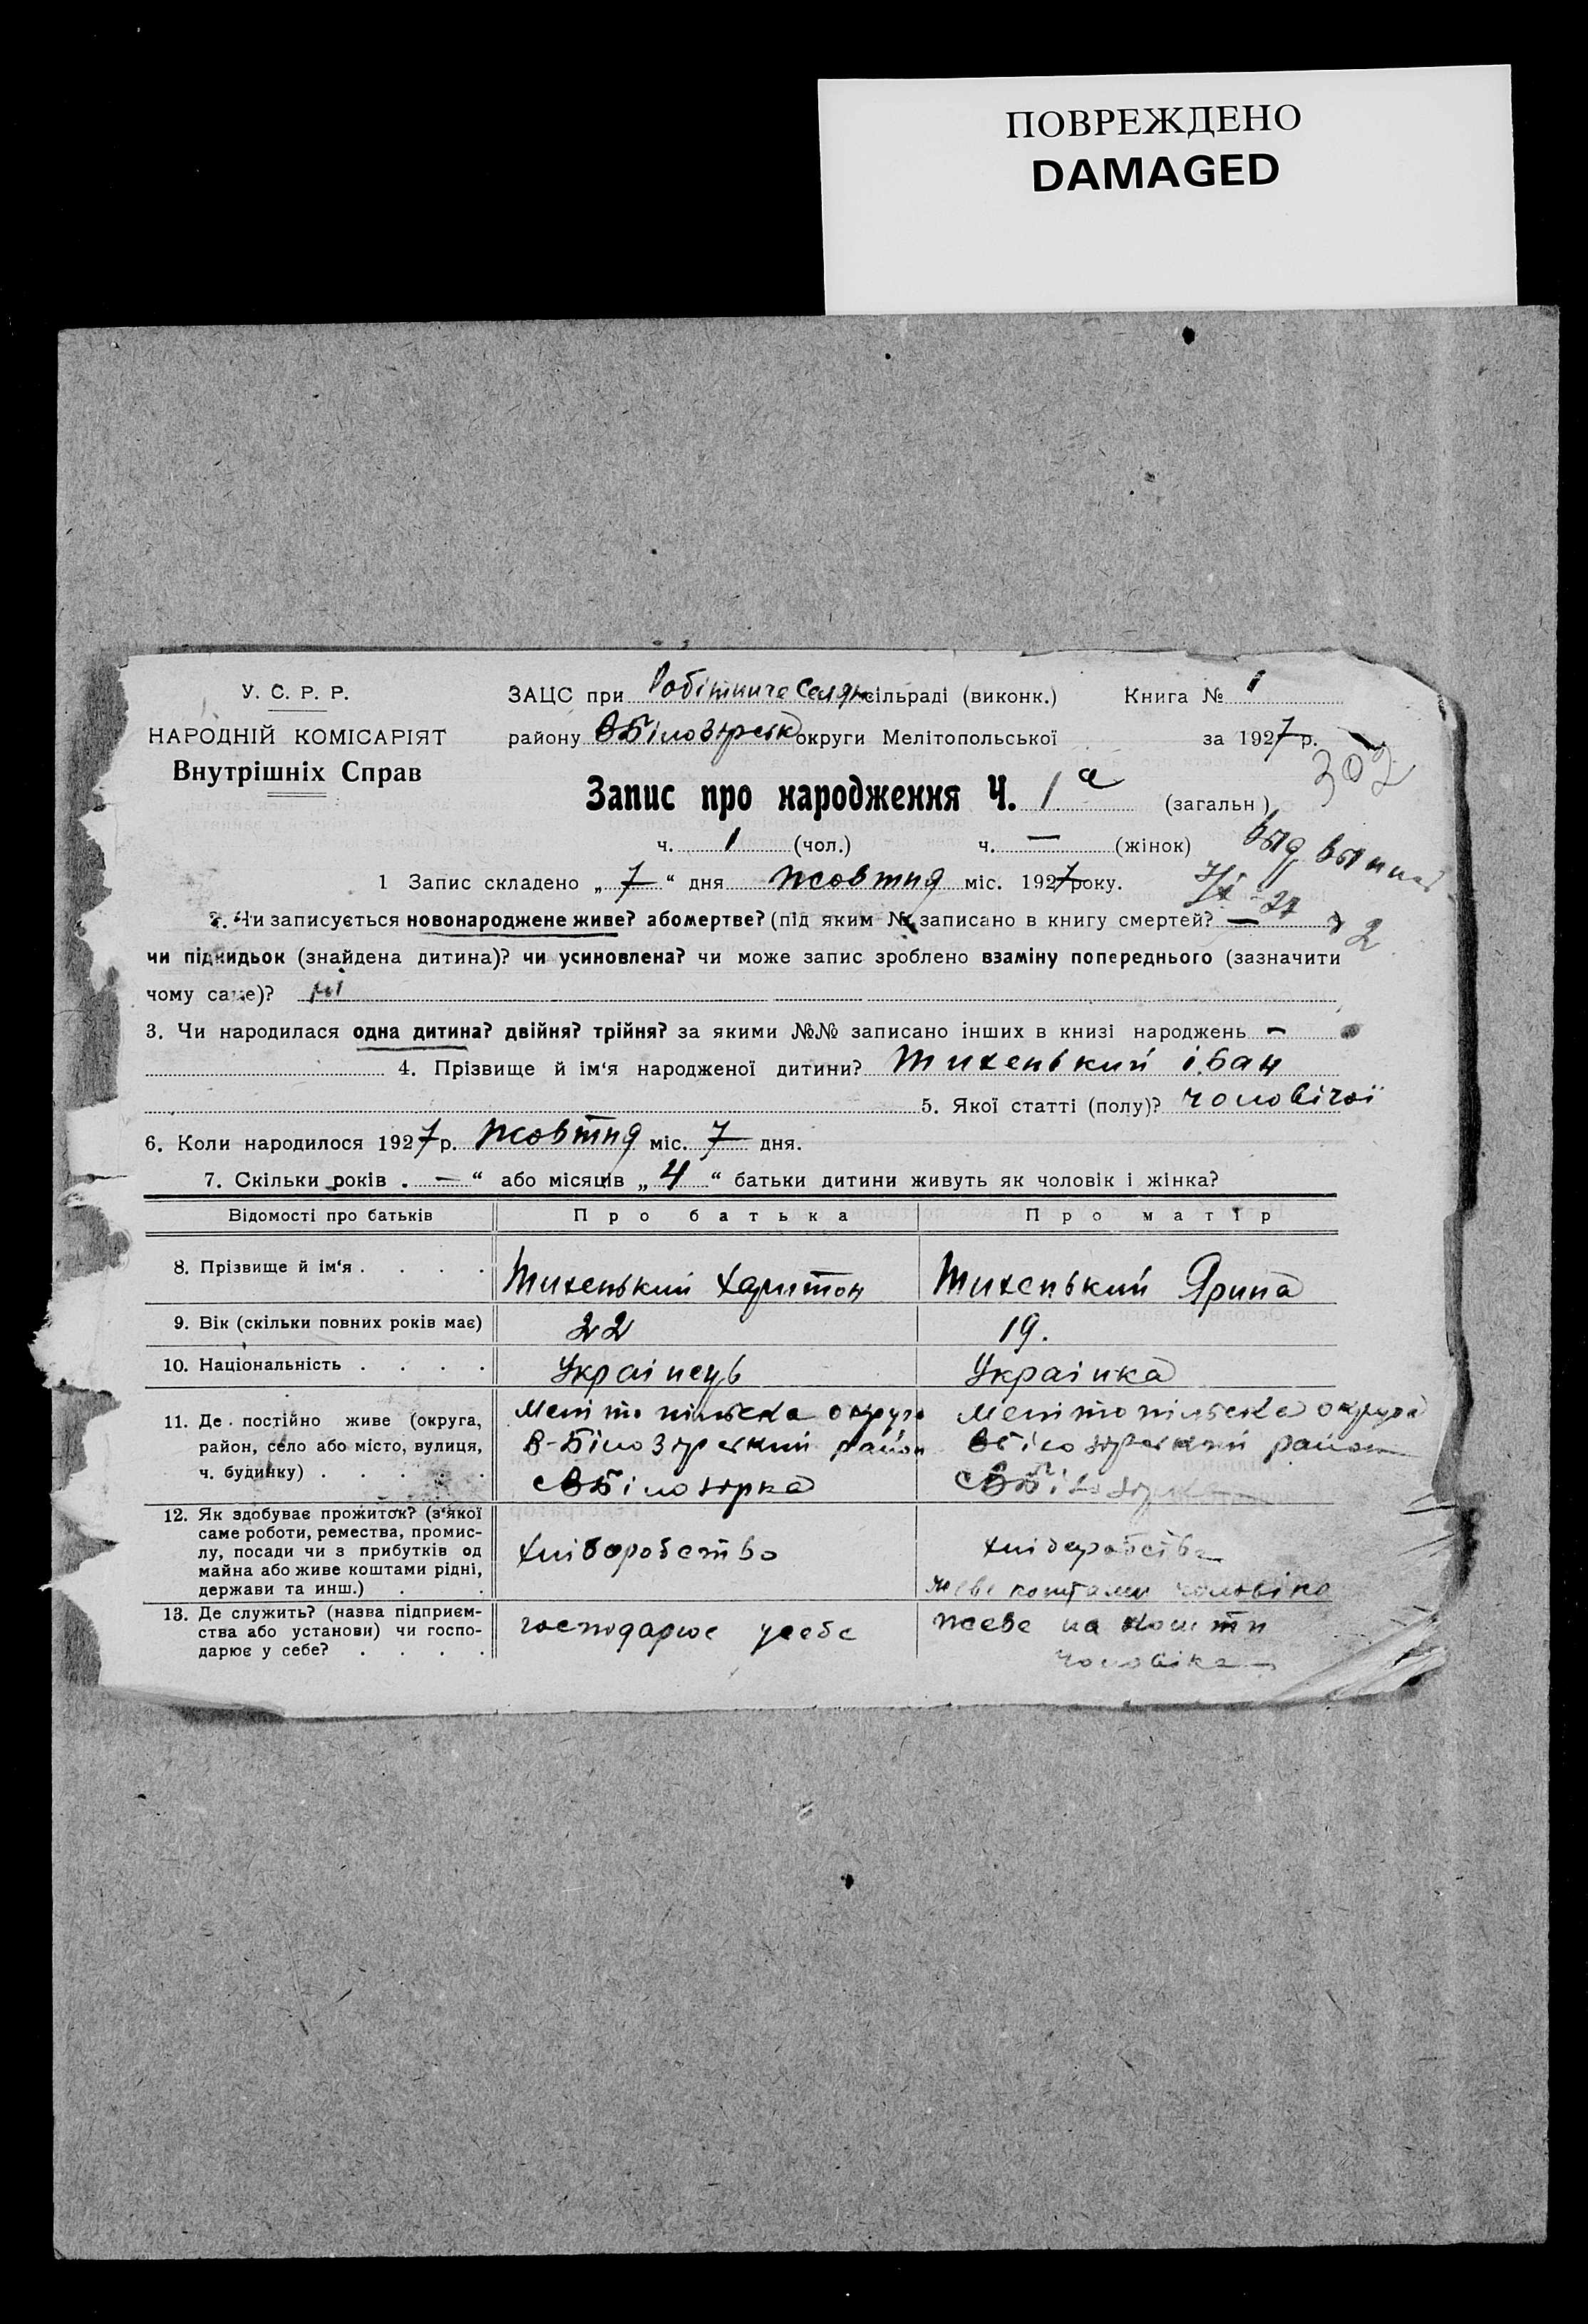 ПОВРЕЖДЕНО
DAMAGED
У. С. Р. Р.
НАРОДНІЙ КОМІСАРІЯТ
Внутрішніх Справ
ЗАЦС при Робітниче Селян сільраді (виконк.) Книга № 1
району ВБілозірськ округи Мелітопольської за 1927 р.
302
Запис про народження Ч. 1 а (загальн)
ч. 1 (чол.) ч. — (жінок)
1 Запис складено „ 7 “ дня жовтня міс. 1927 року.
2. Чи записується новонароджене живе? або мертве? (під яким № записано в книгу смертей? —
2
чи підкидьок (знайдена дитина)? чи усиновлена? чи може запис зроблено взаміну попереднього (зазначити
чому саме)? ні
3. Чи народилася одна дитина? двійня? трійня? за якими №№ записано інших в книзі народжень —
4. Прізвище й ім‘я народженої дитини? Тихенький іван
5. Якої статті (полу)? чоловічої
6. Коли народилося 1927 р. жовтня міс. 7 дня.
7. Скільки років . — “ або місяців „ 4 “ батьки дитини живуть як чоловік і жінка?
Відомості про батьків Про батька Про матір
8. Прізвище й ім‘я . . . . Тихенький Харитон Тихенький Ярина
9. Вік (скільки повних років має) 22 19.
10. Національність . . . . Украінець Украінка
11. Де постійно живе (округа, Мелітопільска округа Мелітопільска округа
район, село або місто, вулиця, В-Білозірский район ВБілозірский район
ч. будинку) . . . . . с ВБілозірка с ВБілозірка
12. Як здобуває прожиток? (з‘якої
саме роботи, ремества, промис-
лу, посади чи з прибутків од хліборобство хліборобство
майна або живе коштами рідні,
держави та инш.) . . живе коштами чоловіка
13. Де служить? (назва підприєм- господарює усебе живе на кошти
ства або установи) чи госпо- чоловіка
дарює у себе? . . . .